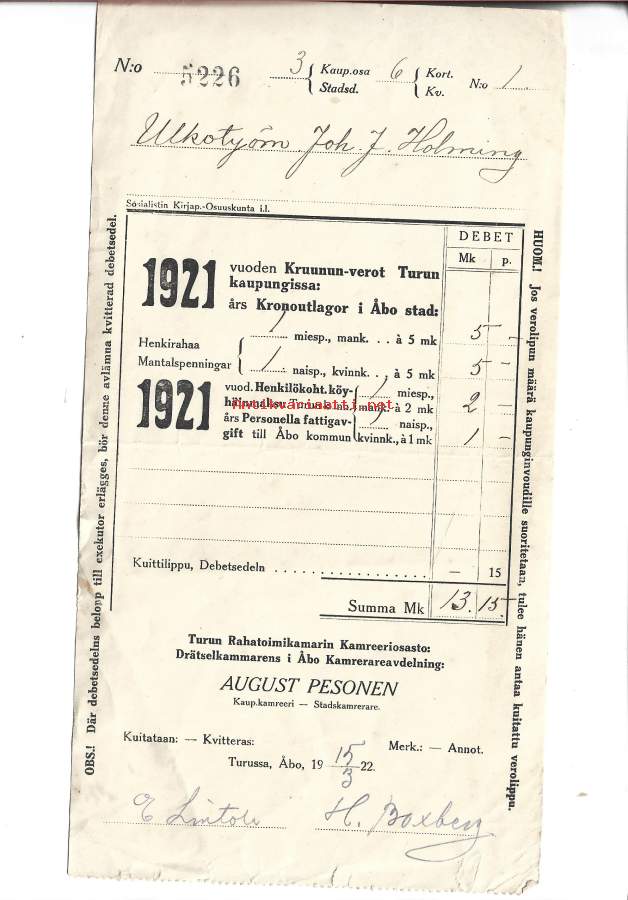 N:o 5226 3 { Kaup.osa Stadsd. 6 { Kort. Kv. N:o 1
Ulkotyöm. Joh. J. Holming
Sosialistin Kirjap.-Osuuskunta i.l.
DEBET
Mk p.
1921 vuoden Kruunun-verot Turun
kaupungissa:
års Kronoutlagor i Åbo stad:
Henkirahaa
Mantalspenningar
1 miesp., mank. . . à 5 mk 5 –
1 naisp., kvinnk. . . à 5 mk 5 –
1921 vuod. Henkilökoht. köy-
1 miesp.,
mank. à 2 mk 2 –
års Personella fattigav-
1 naisp.,
gift till Åbo kommun kvinnk., à 1 mk 1 –
antikvariaatti.net
Kuittilippu, Debetsedeln . . . . . . . . . . . . . . . . . . – 15
Summa Mk 13. 15
Turun Rahatoimikamarin Kamreeriosasto:
Drätselkammarens i Åbo Kamrerareavdelning:
AUGUST PESONEN
Kaup.kamreeri — Stadskamrerare.
Kuitataan: — Kvitteras:
Merk.: — Annot.
Turussa, Åbo, 19 15/3 22.
H. Boxberg
OBS.! Där debetsedelns belopp till exekutor erlägges, bör denne avlämna kvitterad debetsedel.
HUOM.! Jos verolipun määrä kaupunginvoudille suoritetaan, tulee hänen antaa kuitattu verolippu.